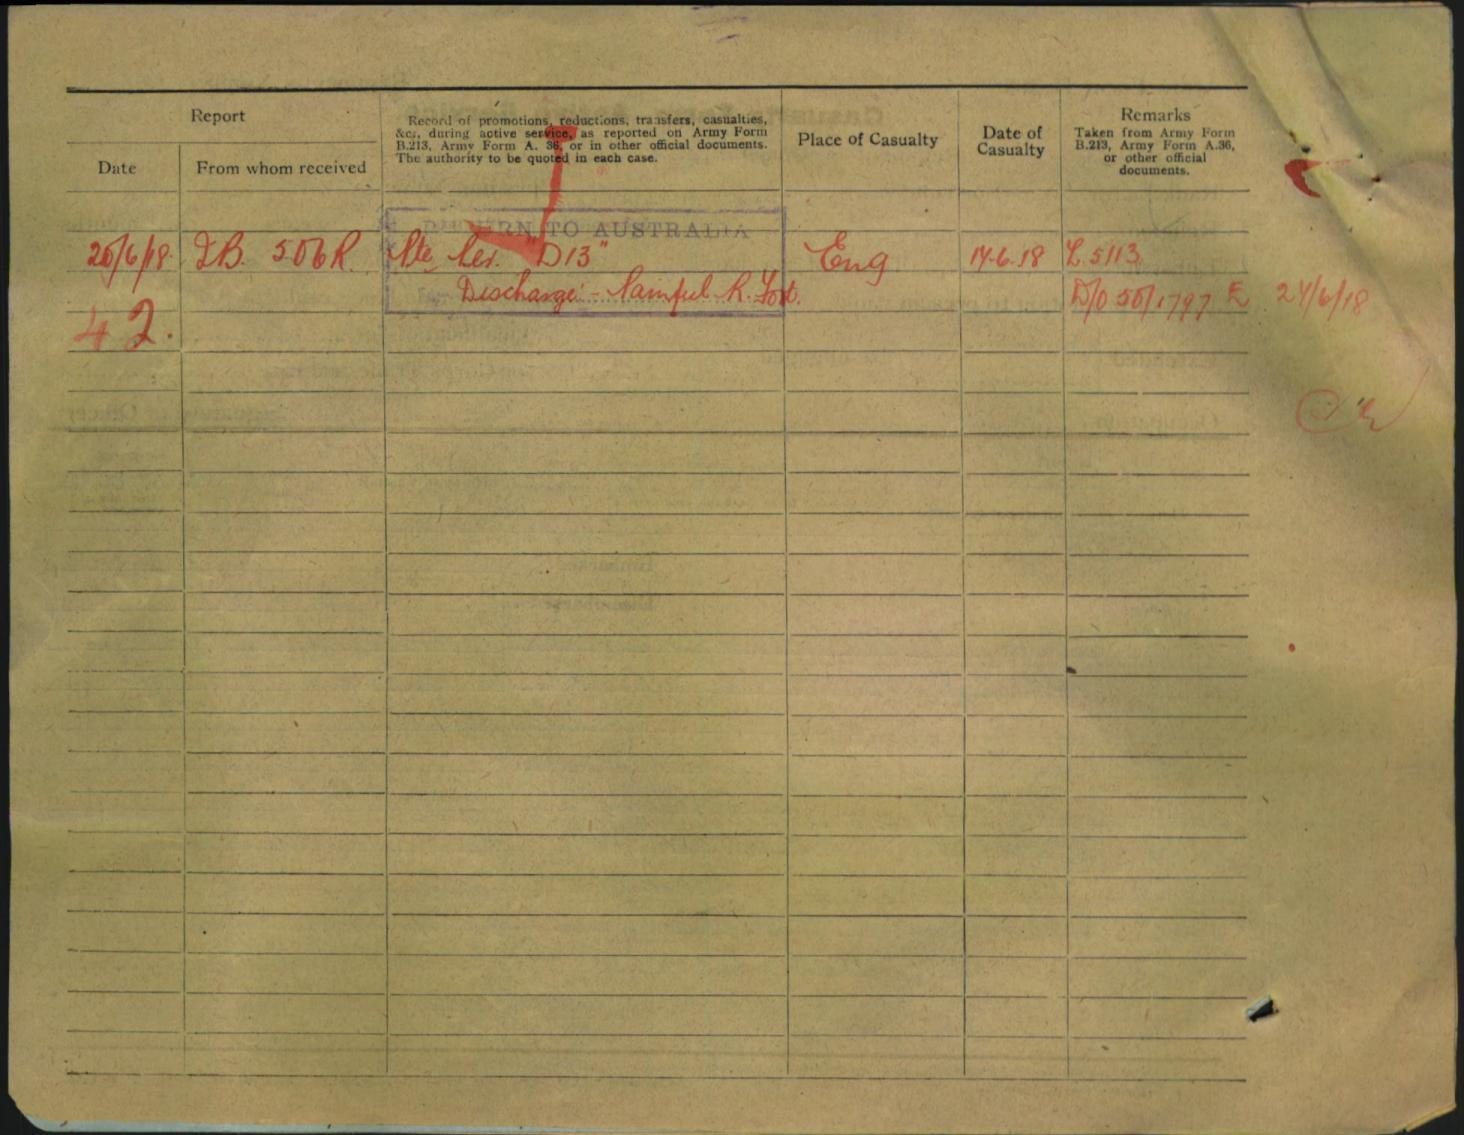 Report
Date
From whom received
Record of promotions, reductions, transfers, casualties,
&c., during active service, as reported on Army Form
B.213, Army Form A. 36, or in other official documents.
The authority to be quoted in each case.
Place of Casualty
Date of
Casualty
Remarks
Taken from Army Form
B.213, Army Form A.36,
or other official
documents.
RETURN TO AUSTRALIA
20/6/18. 506R. "D13" Eng 17.6.18 L.5113
Discharge - Painful R. Foot. D/O 50/1797 E 24/6/18
42.